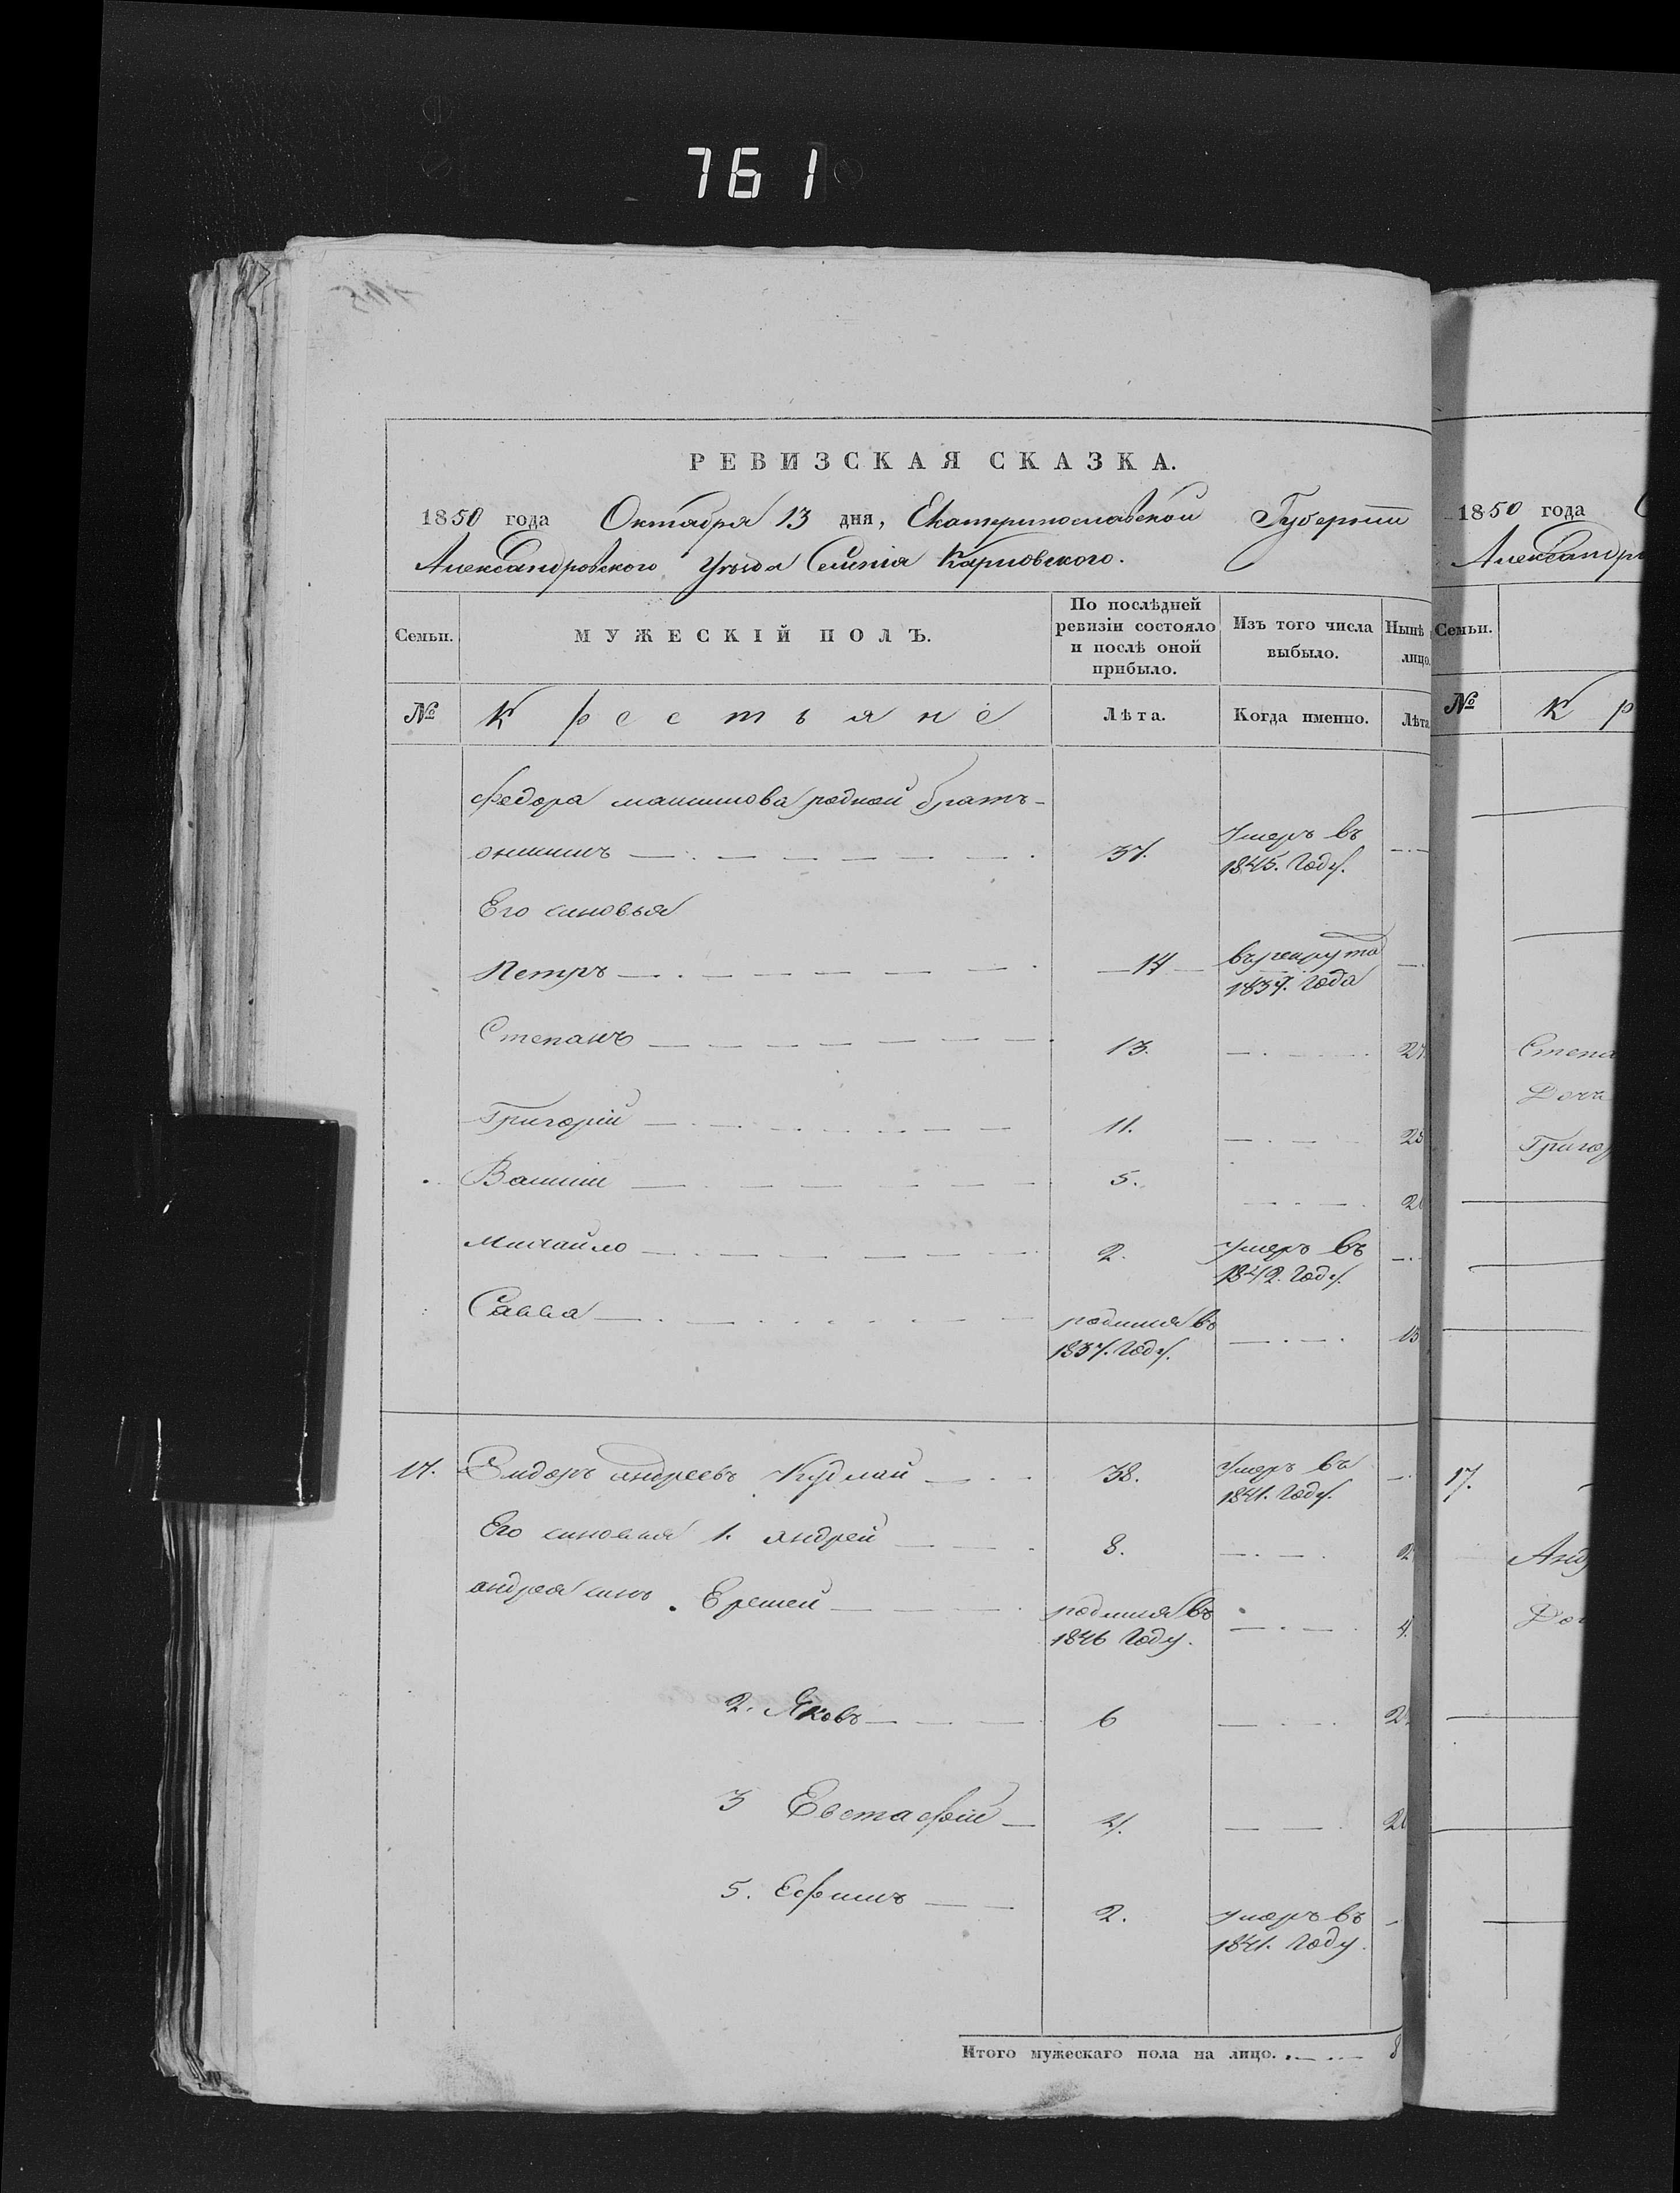 761
РЕВИЗСКАЯ СКАЗКА.
1850 года Октября 13 дня, Екатеринославской Губернии
Александровского Уезда Селения Карповского.
Семьи.
МУЖЕСКІЙ ПОЛЪ.
По послѣдней ревизіи состояло и послѣ оной прибыло.
Изъ того числа выбыло.
Нынѣ
лицо.
№
Крестьяне
Лѣта.
Когда именно.
Лѣта
Федора Максимова родной братъ
37. Умеръ въ
1845. году.
Его синовья
Петръ 14 въ рекрута
1837. года
Степанъ 13. 27.
Григорій 11. 25
5. 20
Михайло 2. умеръ въ
1842. году.
Савва родился въ 13
1837. году.
17. Андреевъ Кудлай 38. Умеръ въ
1841. году.
Его синовья 1. Андрей 8. 2
Андрея синъ Еремей родился въ 4.
1846 году.
2. Яковъ 6 2
3 Евстафій 4. 20
5. Ефимъ 2. умеръ въ
1841. году.
Итого мужескаго пола на лицо. 8
1850 года
Александр
Семьи.
№ К р
Степа
Дочь
Григор
17.
Анд
До